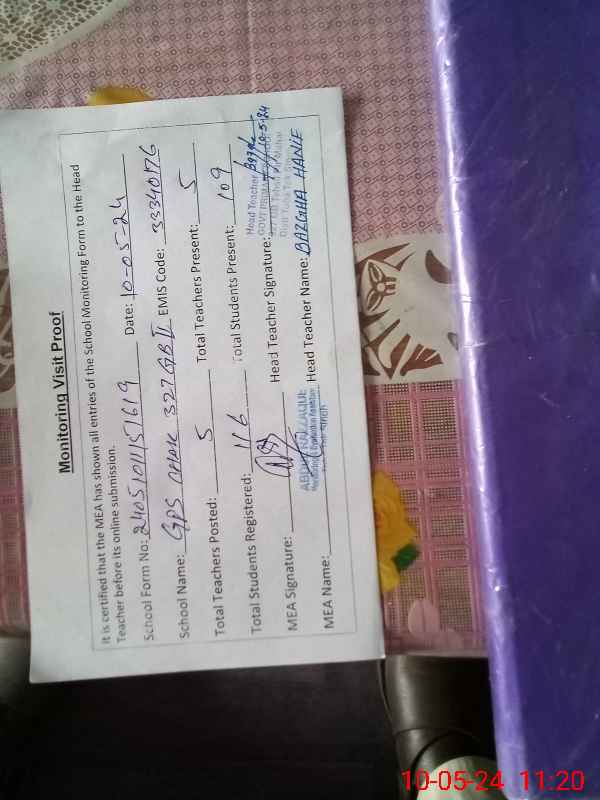 Monitoring Visit Proof
It is certified that the MEA has shown all entries of the School Monitoring Form to the Head
Teacher before its online submission.
School Form No: 24051011151619 Date: 10-05-24
School Name: GPS 327 GB II EMIS Code: 33340176
Total Teachers Posted: 5 Total Teachers Present: 5
Total Students Registered: 116 Total Students Present: 109
Head Teacher
MEA Signature: Head Teacher Signature: 10-5-24
ABDUL RAZZAQUE
MEA Name: Head Teacher Name: BAZGHA HANIF
10-05-24 11:20